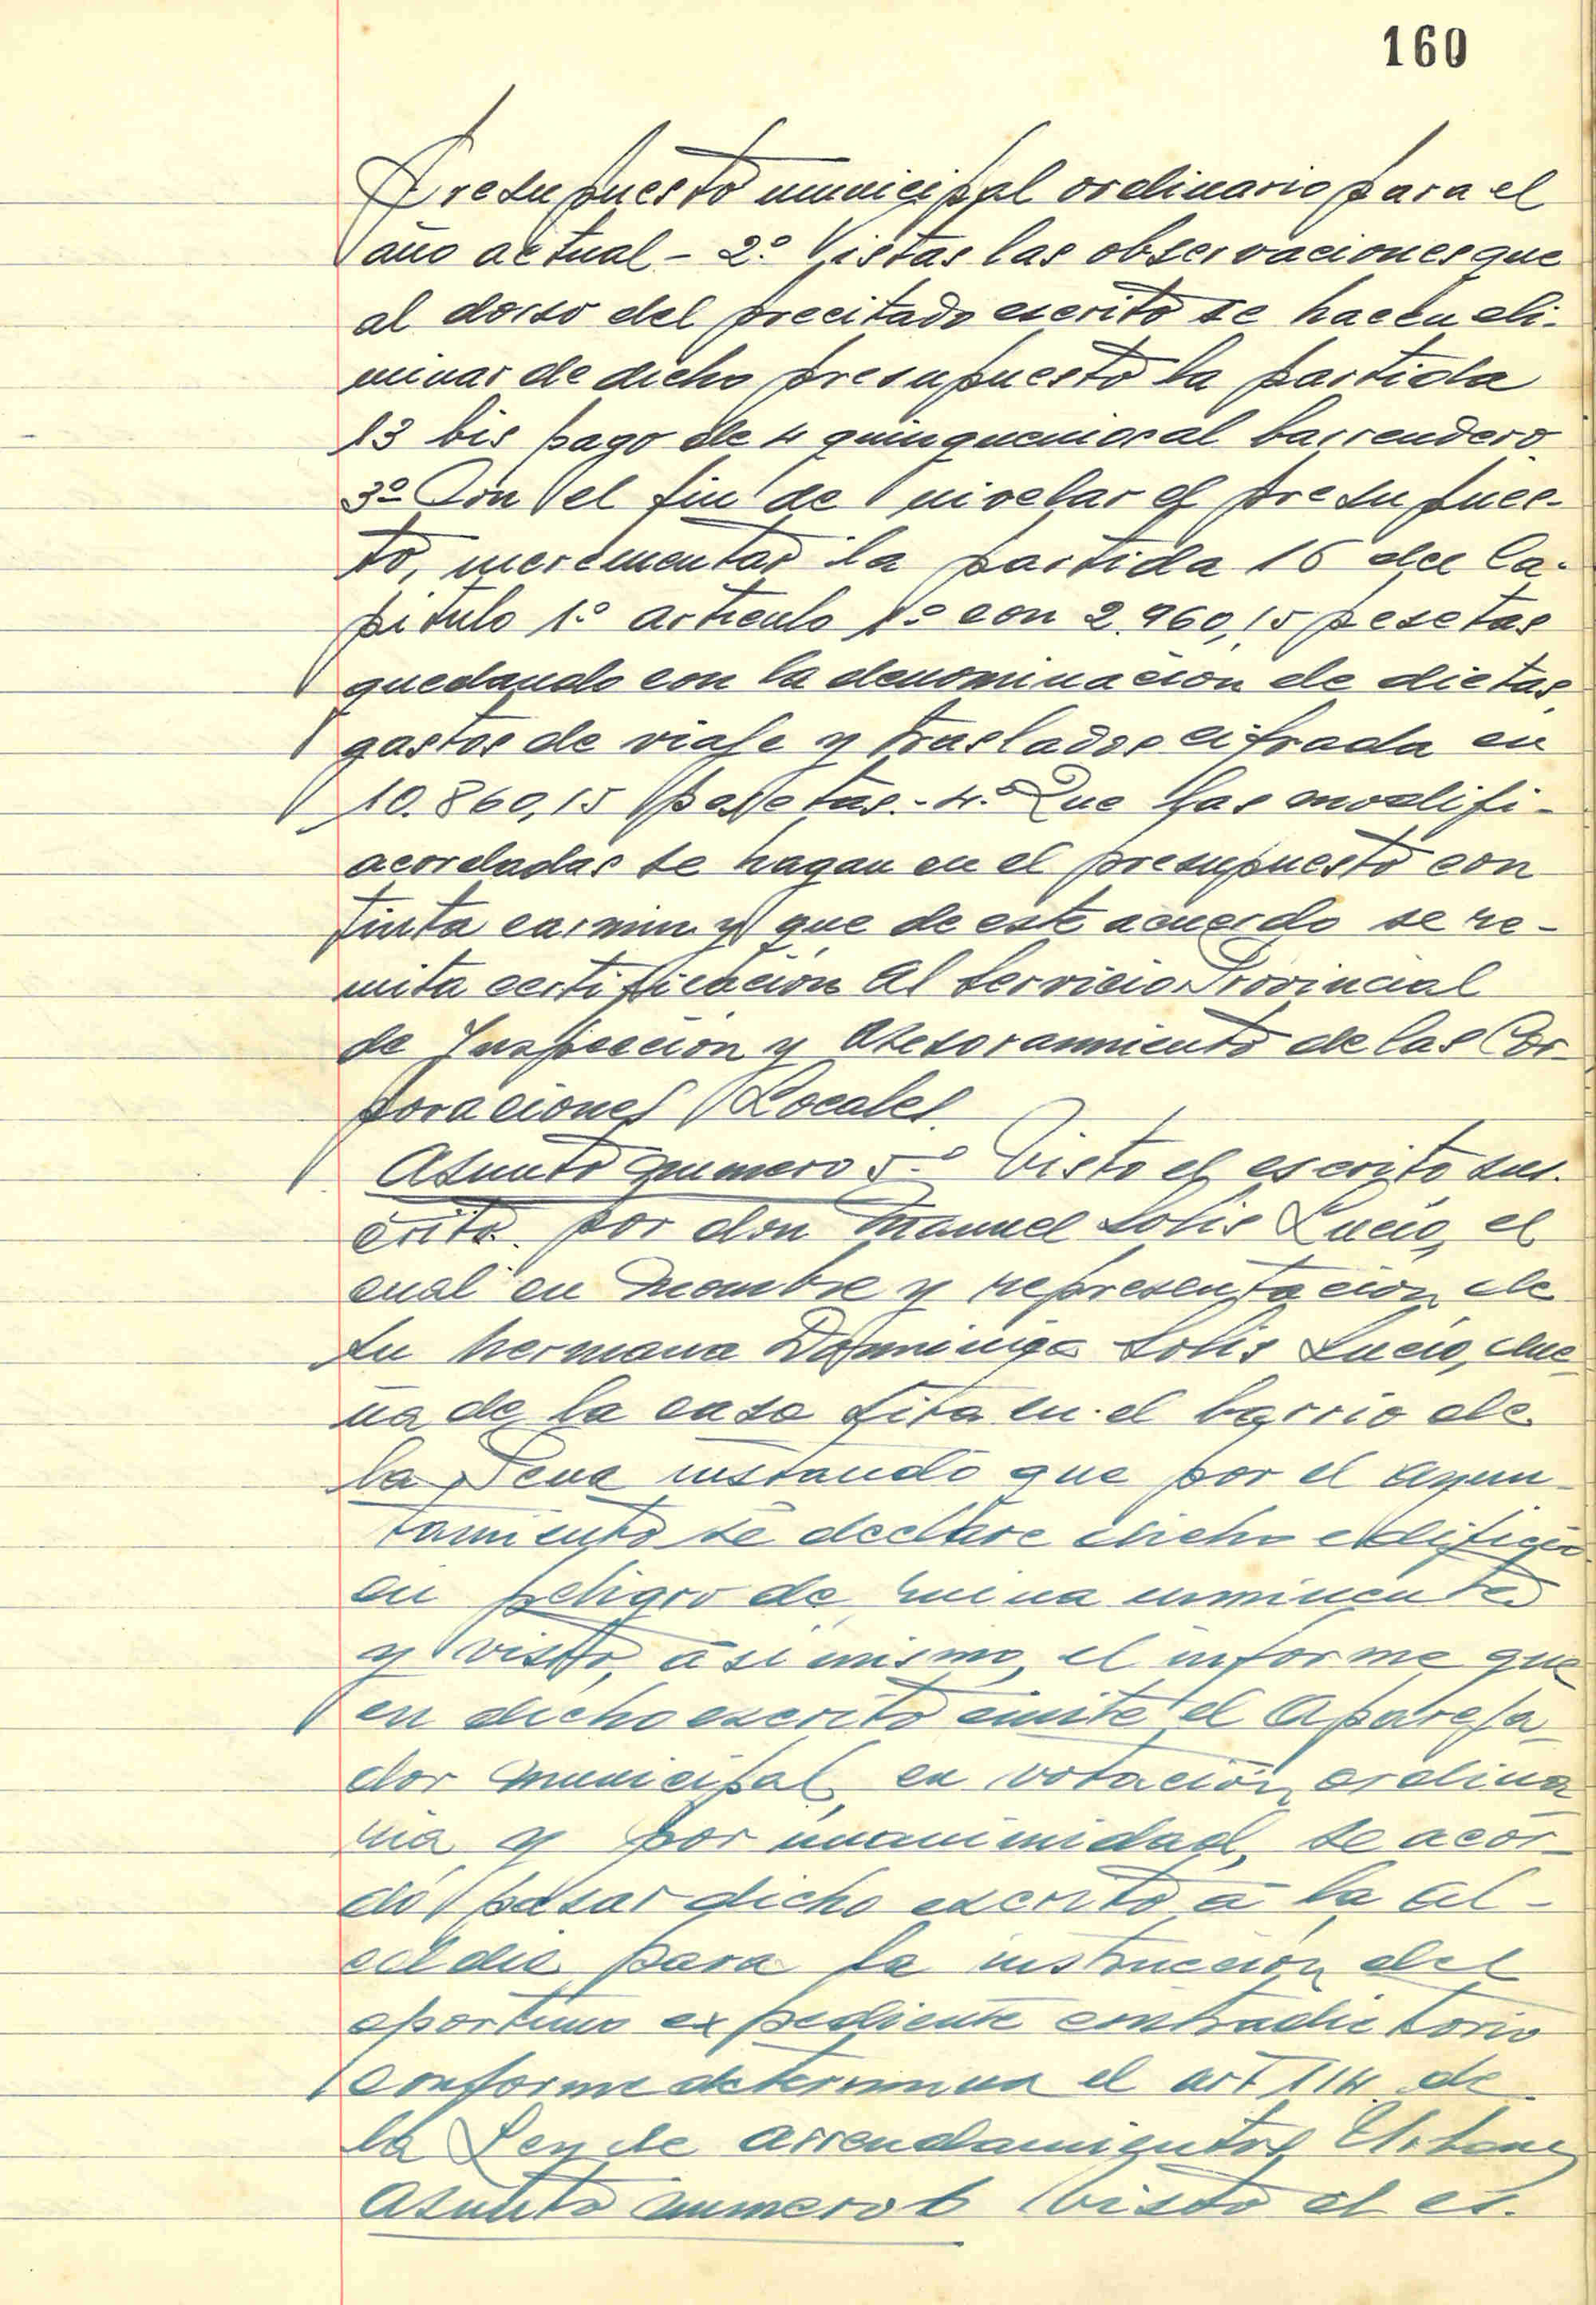 160
Presupuesto municipal ordinario para el
año actual - 2º Vistas las observaciones que
al dorso del precitado escrito se hacen eli-
minar de dicho presupuesto la partida
13 bis pago de 4 quinquenios al barrendero
3º Con el fin de nivelar el presupues-
to, incrementar la partida 16 del Ca-
pitulo 1º articulo 1º con 2.960,15 pesetas
quedando con la denominación de dietas,
gastos de viaje y traslados cifrada en
10.860,15 pesetas.- 4.º Que las modifi-
acordadas se hagan en el presupuesto con
tinta carmin y que de este acuerdo se re-
mita certificación al Servicio Provincial
de Inspección y Asesoramiento de las Cor-
poraciones Locales.
Asunto numero 5º Visto el escrito sus-
crito por don Manuel Solis Lucio, el
cual en nombre y representación de
su hermana Dominica Solis Lucio, due-
ña de la casa sita en el barrio de
la Pena instando que por el ayun-
tamiento se declare dicho edificio
en peligro de ruina inminente
y visto, asi mismo, el informe que
en dicho escrito emite el Apareja-
dor municipal, en votación ordina
ria y por unanimidad, se acor-
dó pasar dicho escrito a la al-
caldia para la instrucción del
oportuno expediente contradictorio
conforme determina el art 114 de
la Ley de arrendamientos Urbanos
Asunto numero 6 Visto el es-